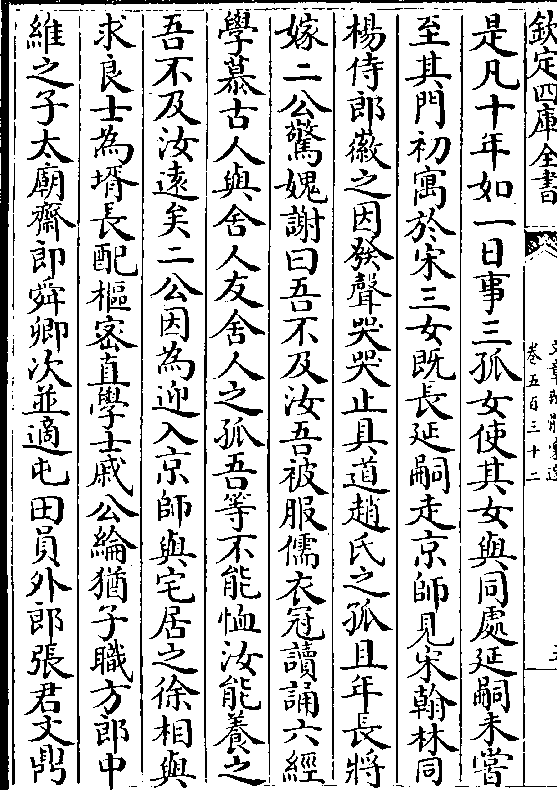 欽定四庫全書
卷五百三十二
是凡十年如一日事三孤女使其女與同處延嗣未嘗
至其門初寓於宋三女既長延嗣走京師見宋翰林同
楊侍郎徽之因發聲哭哭止具道趙氏之孤且年長將
嫁二公驚媿謝曰吾不及汝吾被服儒衣冠讀誦六經
學慕古人與舍人友舍人之孤吾等不能恤汝能養之
吾不及汝遠矣二公因為迎入京師與宅居之徐相與
求良士為壻長配樞密直學士戚公綸猶子職方郎中
維之子太廟齋郎舜卿次並適屯田員外郎張君文鼎